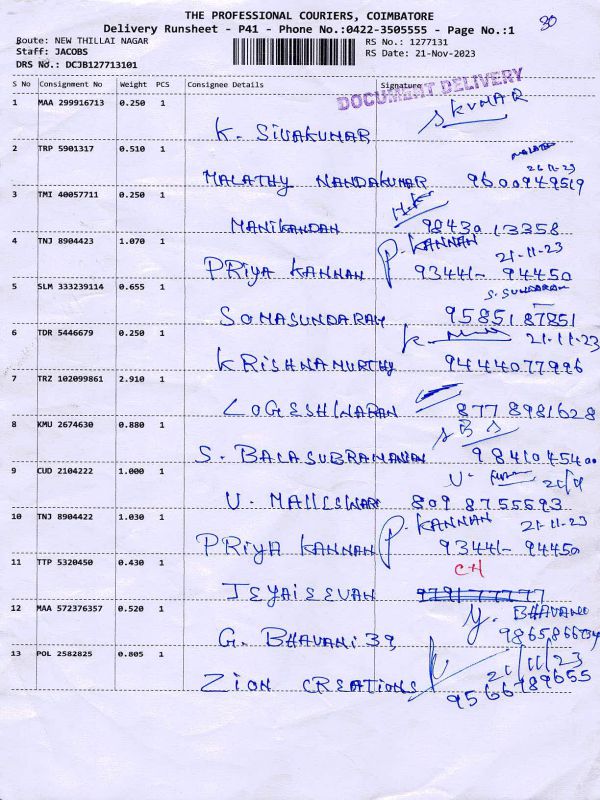 THE PROFESSIONAL COURIERS, COIMBATORE
80
Delivery Runsheet - P41 - Phone No.:0422-3505555 - Page No.:1
Route: NEW THILLAI NAGAR
RS No.: 1277131
Staff: JACOBS
RS Date: 21-Nov-2023
DRS No.: DCJB127713101
S No Consignment No Weight PCS Consignee Details Signature
DOCUMENT DELIVERY
1 MAA 299916713 0.250 1
S KUMAR
K. SIVAKUMAR
2 TRP 5901317 0.510 1
MALATHY NANDAKUMAR 9600949519
3 TMI 40057711 0.250 1
MANIKANDAN 98430 13358
4 TNJ 8904423 1.070 1
P. KANNAN 21-11-23
PRIYA KANNAN 93441- 94450
5 SLM 333239114 0.655 1
S. SUNDARAM
SOMASUNDARAM 95851 87851
6 TDR 5446679 0.250 1
21-11-23
KRISHNAMURTHY 9444077996
7 TRZ 102099861 2.910 1
LOGESHWARAN 8778981628
8 KMU 2674630 0.880 1
S B S
S. BALASUBRAMANIAN 9841045400
9 CUD 2104222 1.000 1
U. MAHESWARI 809 8755593
10 TNJ 8904422 1.030 1
P. KANNAN 21-11-23
PRIYA KANNAN 93441- 94450
11 TTP 5320450 0.430 1
CH
JEYAJEEVAN
12 MAA 572376357 0.520 1
Y. BHAVANI
G. BHAVANI 39
13 POL 2582825 0.805 1
21/11/23
ZION CREATIONS 9566789655